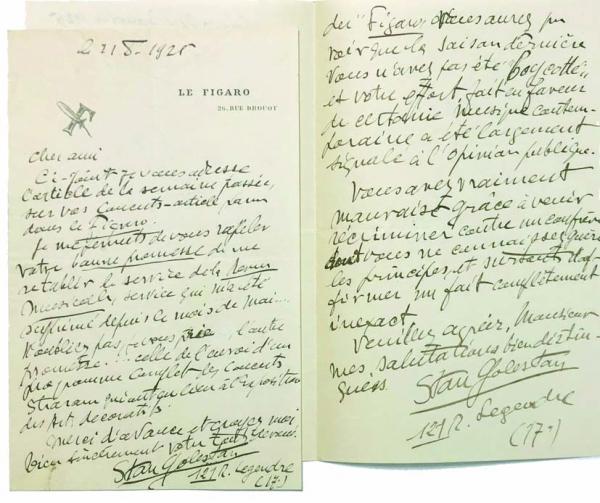 1925
LE FIGARO
26, RUE DROUOT
F
Cher ami
Ci-joint je vous adresse
l'article de la semaine passée,
sur vos Concerts - article paru
dans le Figaro.
Je me permets de vous rappeler
votre bonne promesse de me
rétablir le service de la Revue
Musicale, service qui m'a été
supprimé depuis le mois de Mai...
N'oubliez pas, je vous prie, l'autre
promesse... celle de l'envoi d'un
programme complet des Concerts
Straram qui ont eu lieu à l'exposition
des Arts décoratifs.
Merci d'avance et croyez moi
bien sincèrement votre tout dévoué.
Stan Golestan
12, R. Legendre
(17e)
du "Figaro", vous aurez pu
voir que la saison dernière
vous n'avez pas été "boycotté"
et votre effort fait en faveur
de cette musique contem-
poraine a été largement
signalé à l'opinion publique.
Vous avez vraiment
mauvaise grâce à venir
récriminer contre un confrère
dont vous ne connaissez guère
les principes, et surtout d'af-
firmer un fait complètement
inexact.
Veuillez agréer, Monsieur
mes salutations bien distin-
guées.
Stan Golestan
12, R. Legendre
(17e)